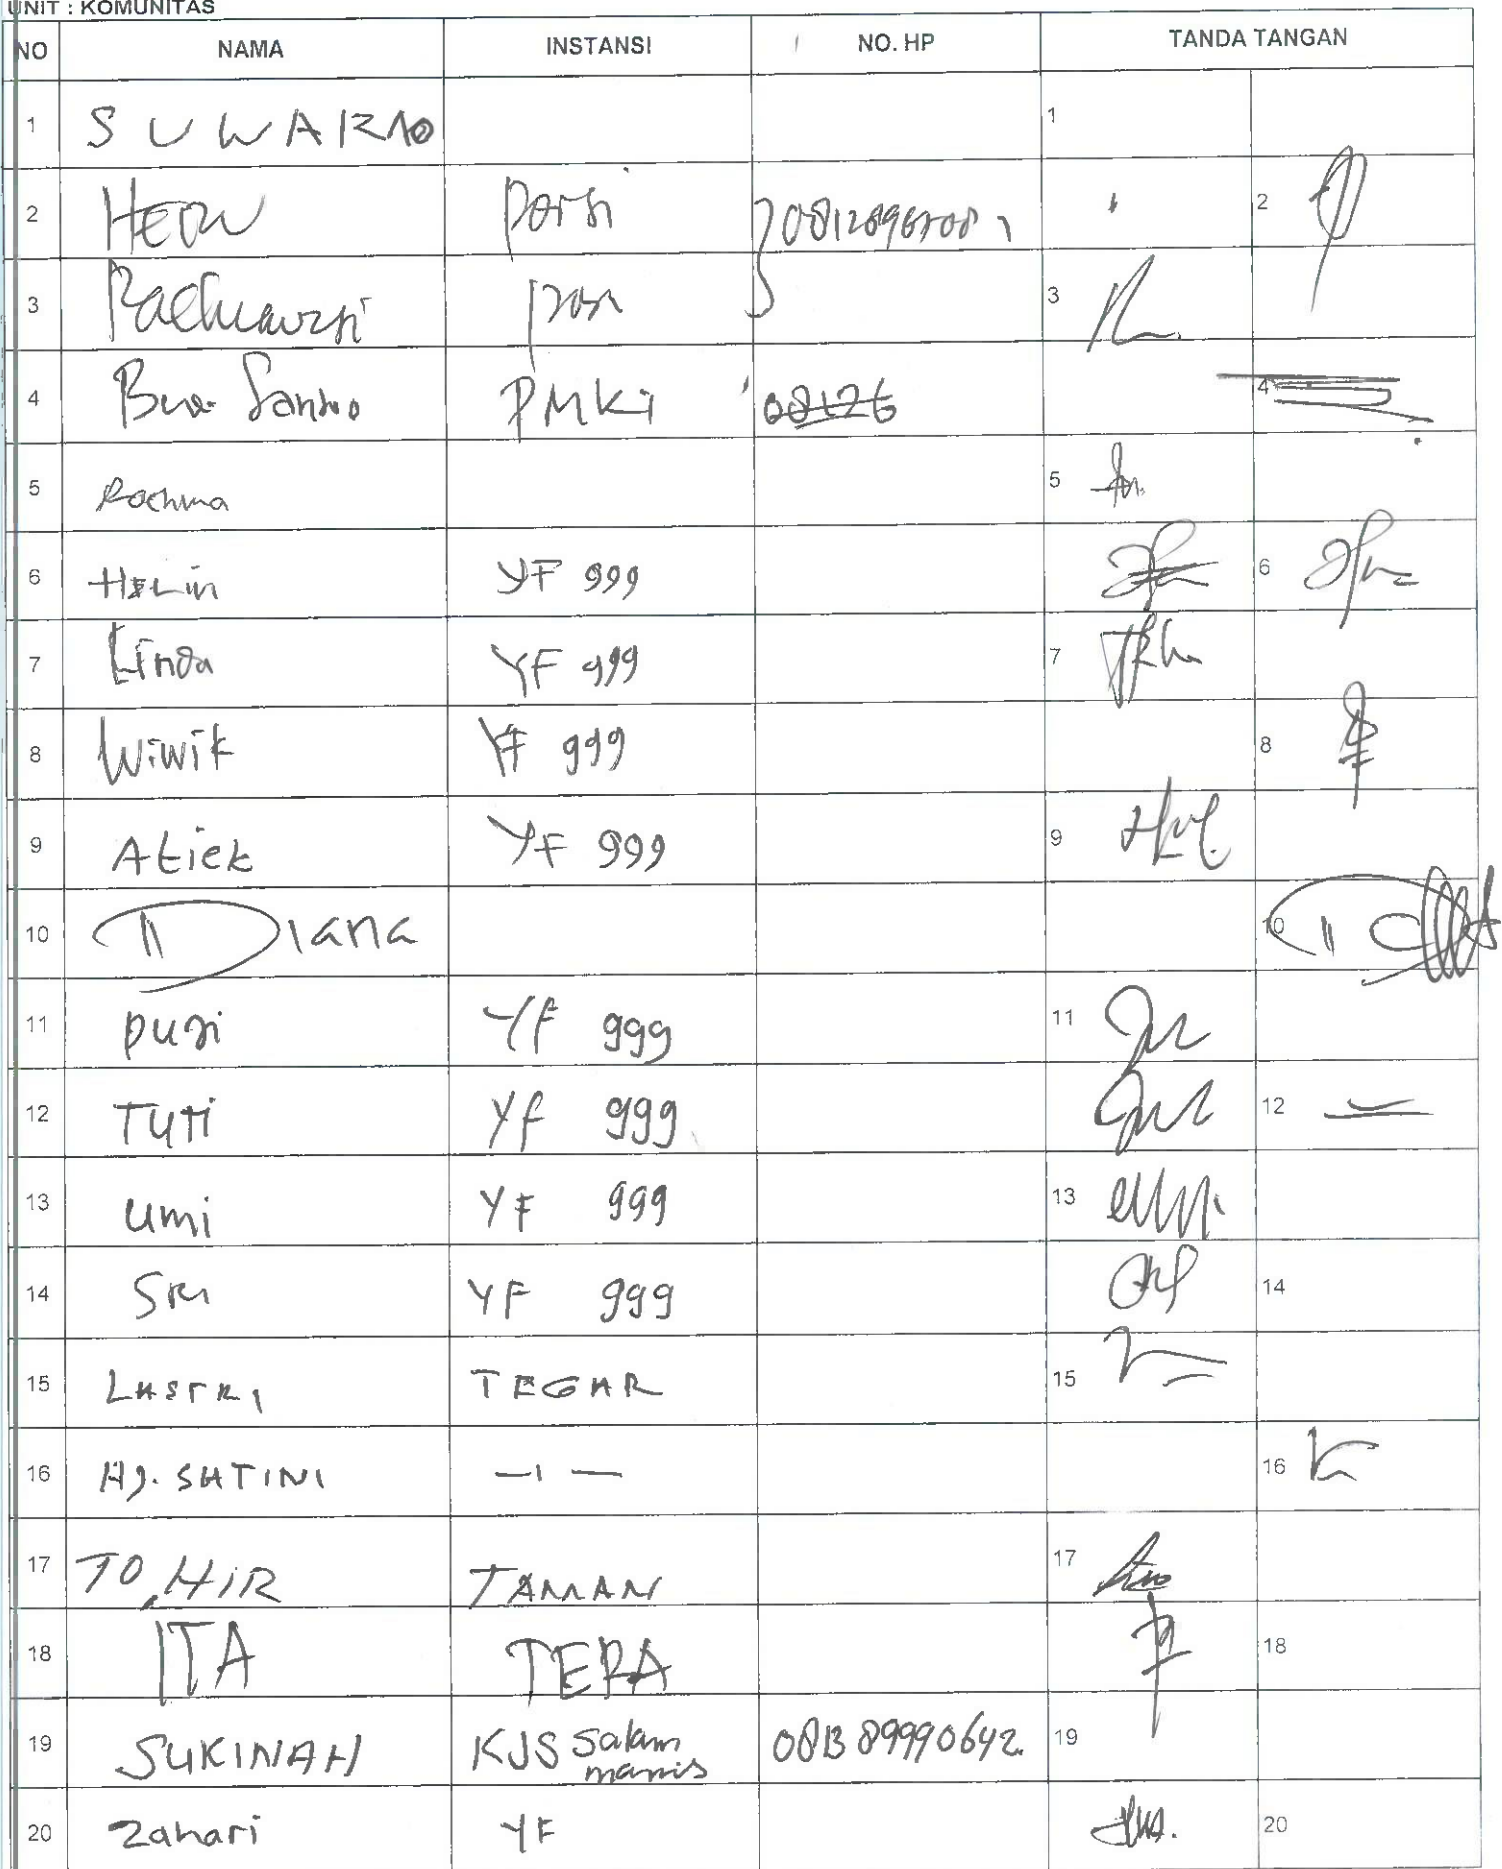 UNIT : KOMUNITAS
NO NAMA INSTANSI NO. HP TANDA TANGAN
1 SUWARNO 1
2 HERU Porsi 2
3 3
4 PMKI 08126 4
5 Rachma 5
6 HELIN YF 999 6
7 Linda YF 999 7
8 Wiwik YF 999 8
9 Atiek YF 999 9
10 Diana 10
11 puri YF 999 11
12 TUTI YF 999 12
13 umi YF 999 13
14 SRI YF 999 14
15 LASTRI TEGAR 15
16 Hj. SATINI — ı — 16
17 TO,HIR TAMAN 17
18 ITA TERA 18
19 SUKINAH KJS Salam 081389990642. 19
manis
20 Zahari YF 20